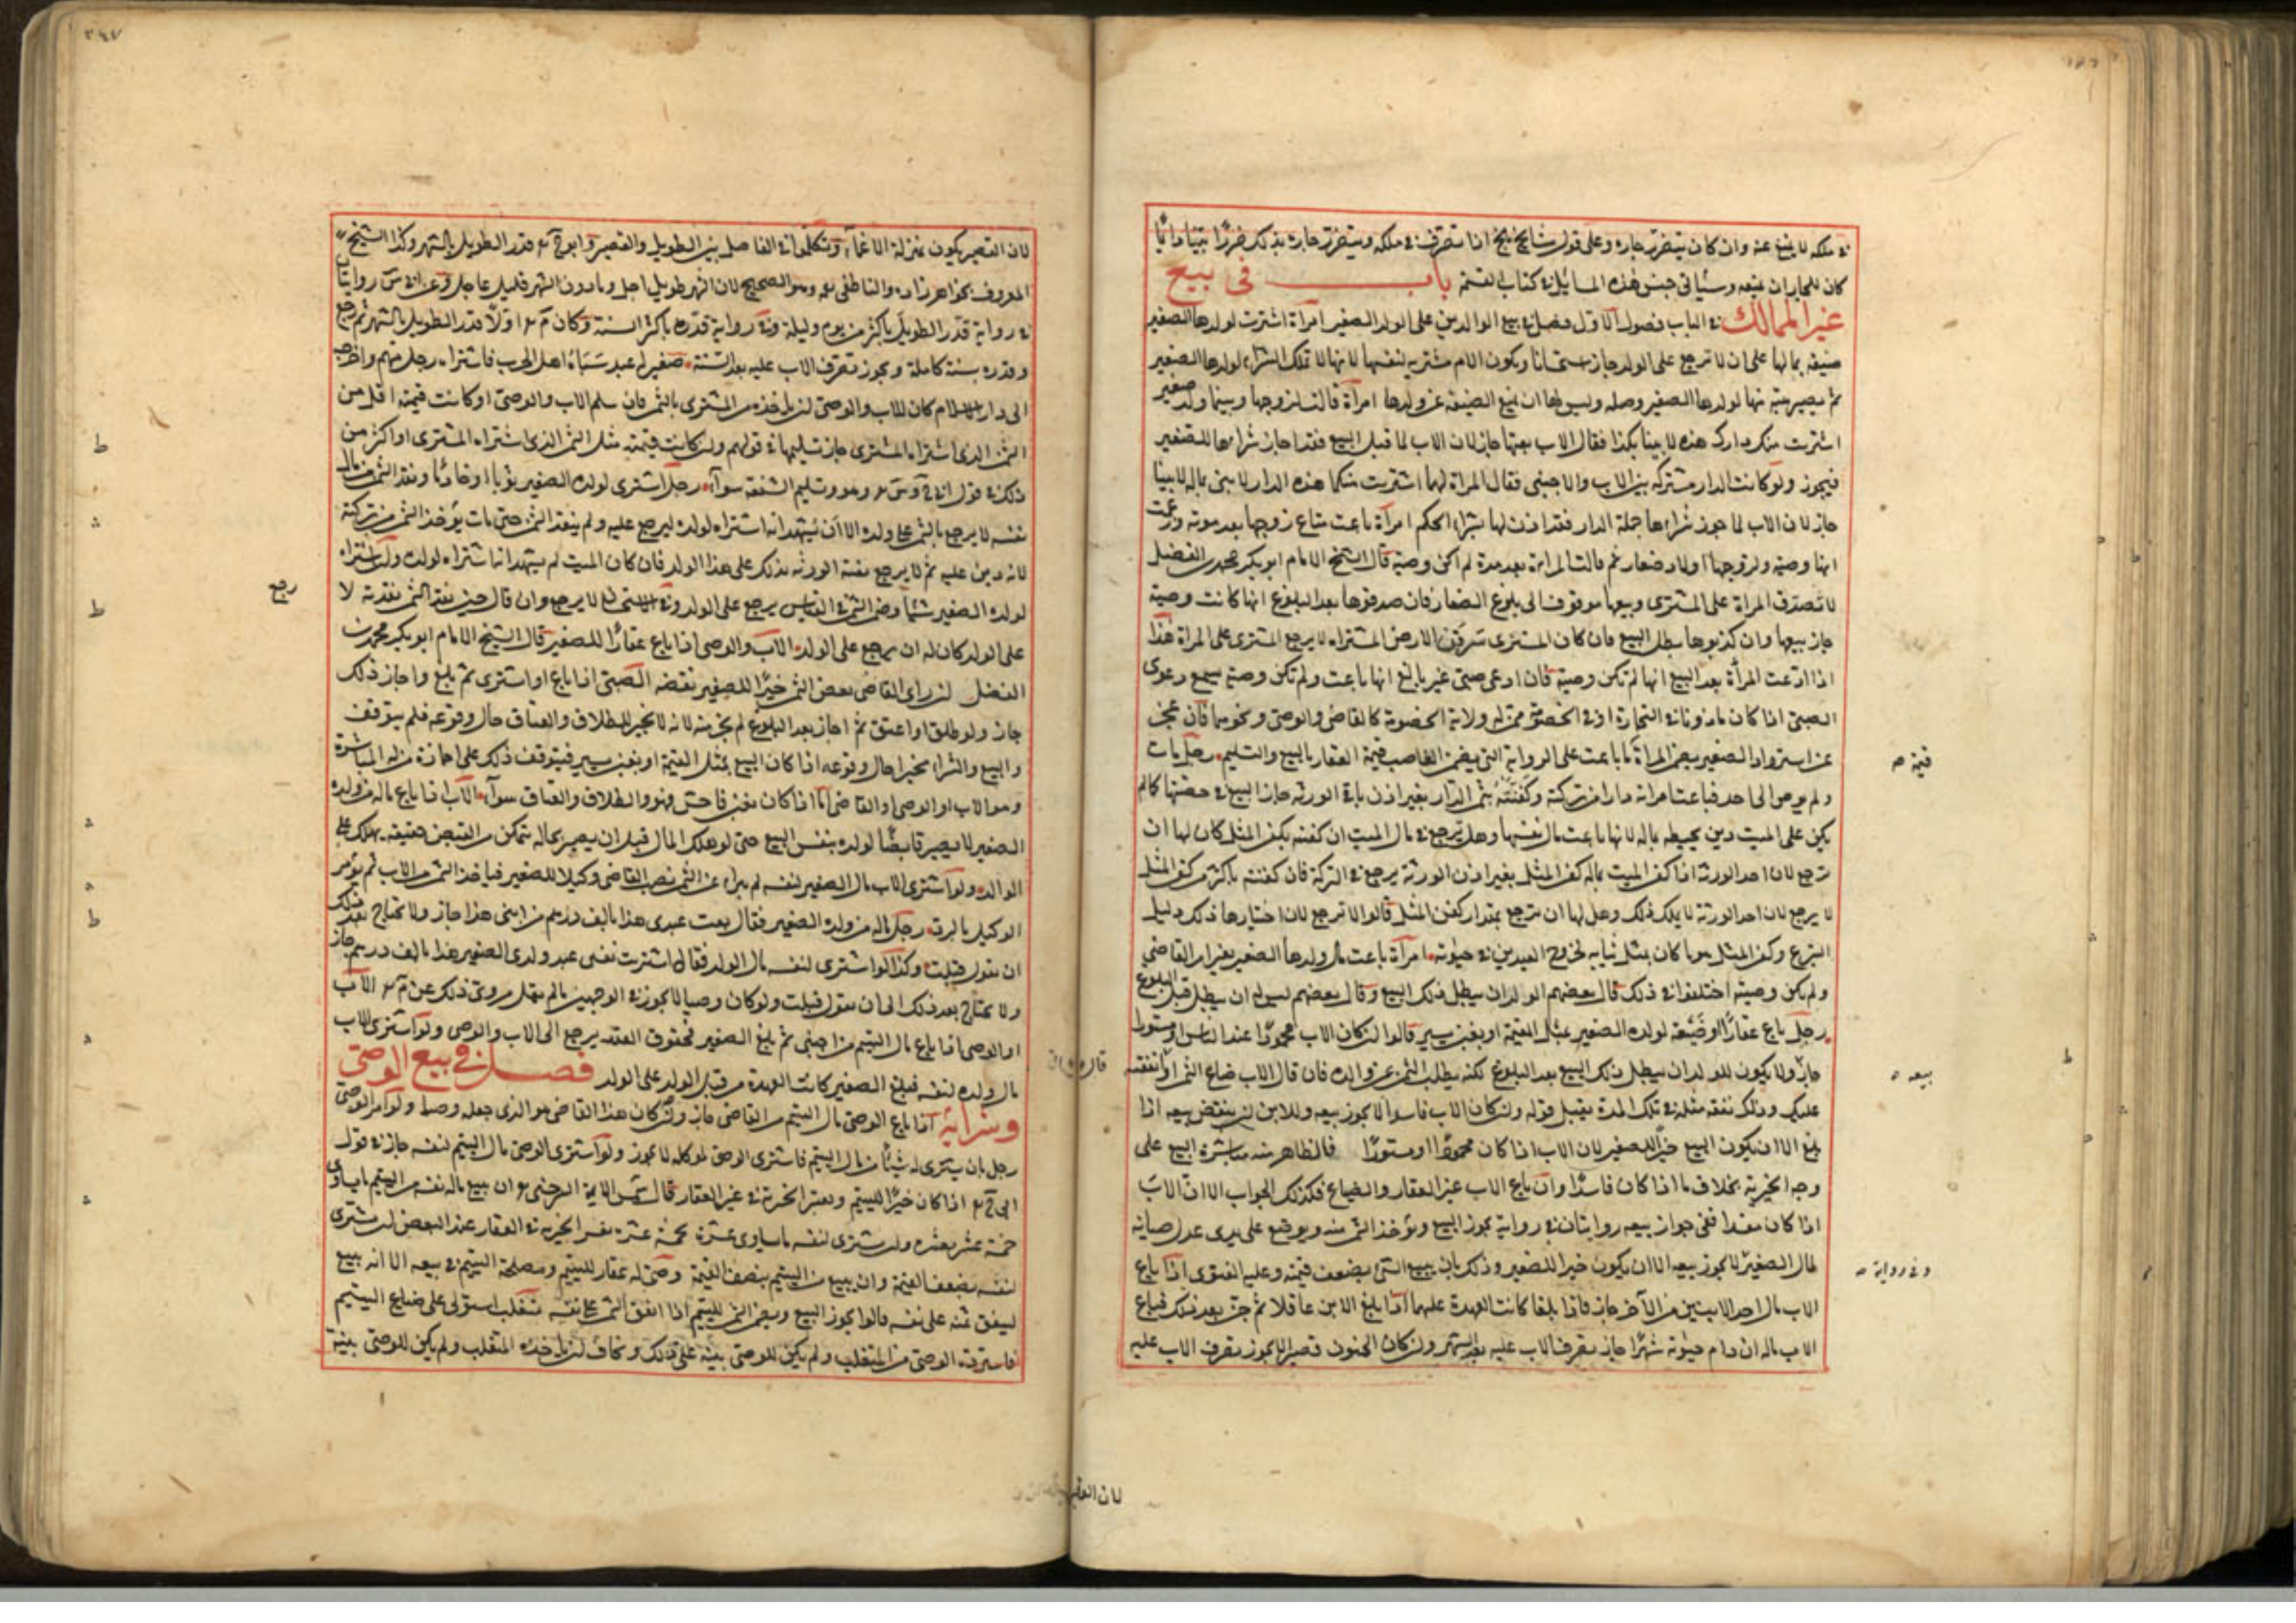 في ملكه لا يمنع عنه وان كان يتضرر جاره وعلى قول مشايخ بلخ اذا تصرف في ملكه ويتضرر جاره بذلك ضررا بينا دائما
كان للجار ان يمنعه وسياتي جنس هذه المسائل في كتاب القسمة باب في بيع
غير المالك في الباب فصول الاول فصل في بيع الوالدين على الولد الصغير امرأة اشترت لولدها الصغير
ضيعة بمالها على ان لا ترجع على الولد جاز استحسانا ويكون الام مشترية لنفسها لانها لا تملك الشراء لولدها الصغير
ثم يصير هبة منها لولدها الصغير وصلة وليس لها ان تمنع الضيعة عن ولدها امرأة قالت لزوجها وبينهما ولد صغير
اشتريت منك دارك هذه لابننا بكذا فقال الاب بعتها جاز لان الاب لما قبل البيع فقد اجاز شراءها للصغير
فيجوز ولو كانت الدار مشتركة بين الاب والاجنبي فقال المراة لهما اشتريت منكما هذه الدار لابني بماله لابننا
جاز لان الاب لما جوز شراءها جملة الدار فقد اذن لها بشراء الحكم امرأة باعت متاع زوجها بعد موته وزعمت
انها وصية ولزوجها اولاد صغار ثم قالت المراة بعد مدة لم اكن وصية قال الشيخ الامام ابو بكر محمد بن الفضل
لا تصدق المراة على المشتري وبيعها موقوف الى بلوغ الصغار فان صدقوها بعد البلوغ انها كانت وصية
جاز بيعها وان كذبوها بطل البيع فان كان المشتري سرقن الارض المشتراه لا يرجع المشتري على المراة هذا
اذا ادعت المرأة بعد البيع انها لم تكن وصية فان ادعى صبي غير بالغ انها باعت ولم تكن وصية سمع دعوى
الصبي اذا كان ماذونا في التجارة او في الخصومة ممن له ولاية الخصومة كالقاضي والوصي ونحوهما فان عجز
عن استرداد الصغير يضمن المراة ما باعت على الرواية التي يضمن الغاصب قيمة العقار بالبيع والتسليم رجل مات
ولم يوص الى احد فباعت امراته دارا من تركته وكفنته بثمن الدار بغير اذن باقي الورثة جاز البيع في حصتها كما لم
يكن على الميت دين يحيط بماله لانها باعت مال نفسها وهل ترجع في مال الميت ان كفنته بكفن المثل كان لها ان
ترجع لان احد الورثة اذا كفن الميت بماله كفن المثل بغير اذن الورثة يرجع في التركة فان كفنته باكثر من كفن المثل
لا يرجع لان احد الورثة لا يملك ذلك وهل لها ان ترجع بمقدار كفن المثل قالوا لا ترجع لان اختيارها ذلك دليل
التبرع وكفن المثل هو ما كان بمثل ثيابه لخروج العيدين في حيوته امرأة باعت مال ولدها الصغير بغير امر القاضي
ولم يكن وصية اختلفوا في ذلك قال بعضهم الولد ان يبطل ذلك البيع وقال بعضهم ليس له ان يبطل قبل البلوغ
رجل باع عقارا او ضيعة لولده الصغير بمثل القيمة او بغبن يسير قالوا ان كان الاب محمودا عند الناس او مستورا
جاز ولا يكون للولد ان يبطل ذلك البيع بعد البلوغ لكنه يطلب الثمن عن والده فان قال الاب ضاع الثمن او انفقته
عليك وذلك نفقة مثله في تلك المدة يقبل قوله وان كان الاب فاسدا لا يجوز بيعه وللابن ان ينقض بيعه اذا
بلغ الا ان يكون البيع خيرا للصغير لان الاب اذا كان محمودا او مستورا فالظاهر منه مباشرة البيع على
وجه الخيرية بخلاف ما اذا كان فاسدا وان باع الاب غير العقار والضياع فكذلك الجواب الا ان الاب
اذا كان مفسدا ففي جواز بيعه روايتان في رواية يجوز البيع ويؤخذ الثمن منه ويوضع على يدي عدل صيانة
لمال الصغير لا يجوز بيعه الا ان يكون خيرا للصغير وذلك بان يبيع الشئ بضعف قيمته وعليه الفتوى اذا باع
الاب مال احد الابنين من الآخر جاز فاذا بلغا كانت العهدة عليهما اذا بلغ الابن عاقلا ثم جن بعد ذلك فباع
الاب ماله ان دام جنونه شهرا جاز تصرف الاب عليه بعد الشهر وان كان الجنون قصيرا لا يجوز تصرف الاب عليه
قيمة صح
بيعه
وفي رواية صح
لان القصير
٢٤٧
لان القصير يكون بمنزلة الاغماء وتكلموا في الفاصل بين الطويل والقصير وابو ح قدر الطويل بالشهر وكذا الشيخ
المعروف بخواهر زاده والناطفي وهو الصحيح لان الشهر طويل اجل وما دون الشهر قليل عاجل وعن س روايتان
في رواية قدر الطويل باكثر من يوم وليلة وفي رواية قدره باكثر السنة وكان م اولا قدر الطويل بالشهر ثم رجع
وقدره بسنة كاملة ويجوز تصرف الاب عليه بعد السنة صغير له عبد سباه اهل الحرب فاشتراه رجل منهم واخرجه
الى دار الاسلام كان للاب والوصي ان ياخذه من المشتري بالثمن فان سلم الاب والوصي او كانت قيمته اقل من
الثمن الذي اشتراه المشتري جاز تسليمهما في قولهم وان كانت قيمته مثل الثمن الذي اشتراه المشتري او اكثر من
ذلك في قول وهو وتسليم الشفعة سواء رجل اشترى لولده الصغير ثوبا او خادما ونقد الثمن من مال
نفسه لا يرجع بالثمن على ولده الا ان يشهد انه اشتراه لولده ليرجع عليه ولم ينقد الثمن حتى مات يؤخذ الثمن من تركته
لانه دين عليه ثم لا يرجع بقية الورثة بذلك على هذا الولد فان كان الميت لم يشهد انه اشتراه لولده وان اشتراه
لولده الصغير شيئا وضمن الثمن في القياس يرجع على الولد وفي الاستحسان لا يرجع وان قال حين نقد الثمن نقدته لا
على الولد كان له ان يرجع على الولد الاب والوصي اذا باع عقارا للصغير قال الشيخ الامام ابو بكر محمد بن
الفضل ان راى القاضي نقض الثمن خيرا للصغير نقضه الصبي اذا باع او اشترى ثم بلغ واجاز ذلك
جاز ولو طلق او اعتق ثم اجاز بعد البلوغ لم يجز منه لانه لا مجيز للطلاق والعتاق حال وقوعه فلم يتوقف
والبيع والشراء مجيزا حال وقوعه اذا كان البيع بمثل القيمة او بغبن يسير فيتوقف ذلك على اجازة من له المباشرة
وهو الاب او الوصي او القاضي اما اذا كان بغبن فاحش فهو والطلاق والعتاق سواء الاب اذا باع ماله من ولده
الصغير لا يصير قابضا لولده بنفس البيع حتى لو هلك المال قبل ان يصير بحال يتمكن من القبض حقيقة يهلك على
الوالد ولو اشترى الاب مال الصغير لنفسه لم يبراء عن الثمن نصب القاضي وكيلا للصغير فياخذ الثمن من الاب ثم يؤمر
الوكيل بالرد رجل ماله من ولده الصغير فقال بعت عبدي هذا بالف درهم من ابني هذا جاز ولا يحتاج بعد ذلك
ان يقول قبلت وكذا لو اشترى لنفسه مال الولد فقال اشتريت نفسي عبد ولدي الصغير هذا بالف درهم جاز
ولا يحتاج بعد ذلك الى ان يقول قبلت ولو كان وصيا لا يجوز في الوجهين ما لم يقل مروي ذلك عن م الاب
او الوصي اذا باع مال اليتيم من اجنبي ثم بلغ الصغير فحقوق العقد يرجع الى الاب والوصي ولو اشترى الاب
مال ولده لنفسه فبلغ الصغير كانت العهدة من قبل الولد على الولد فصل في بيع الوصي
وشرائه اذا باع الوصي مال اليتيم من القاضي جاز وان كان هذا القاضي هو الذي جعله وصيا ولو امر الوصي
رجل بان يشتري له شيئا من مال اليتيم فاشترى الوصي لموكله لا يجوز ولو اشترى الوصي مال اليتيم لنفسه جاز في قول
ابي ح اذا كان خيرا لليتيم وتفسير الخيرية في غير العقار قال شمس الايمة السرخسي هو ان يبيع ماله نفسه من اليتيم ما يساوي
خمسة عشر بعشرة وان يشتري لنفسه ما يساوي عشرة بخمسة عشرة تفسير الخيرية في العقار عند البعض ان يشتري
لنفسه بضعف القيمة وان يبيع من اليتيم بنصف القيمة وصي له عقار لليتيم ومصلحة اليتيم في بيعه الا انه يبيع
لينفق ثمنه على نفسه قالوا يجوز البيع ويضمن الثمن لليتيم اذا انفق الثمن على نفسه متغلب استولى على ضياع اليتيم
فاسترده الوصي من المتغلب ولم يكن للوصي بينة على ذلك وخاف ان ياخذه المتغلب ولم يكن للوصي بينة
رجع